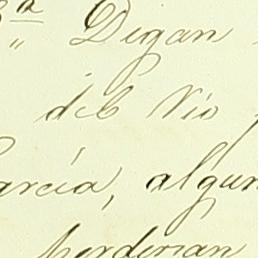 3ª Digan
" del Nio
García, algun
perderian